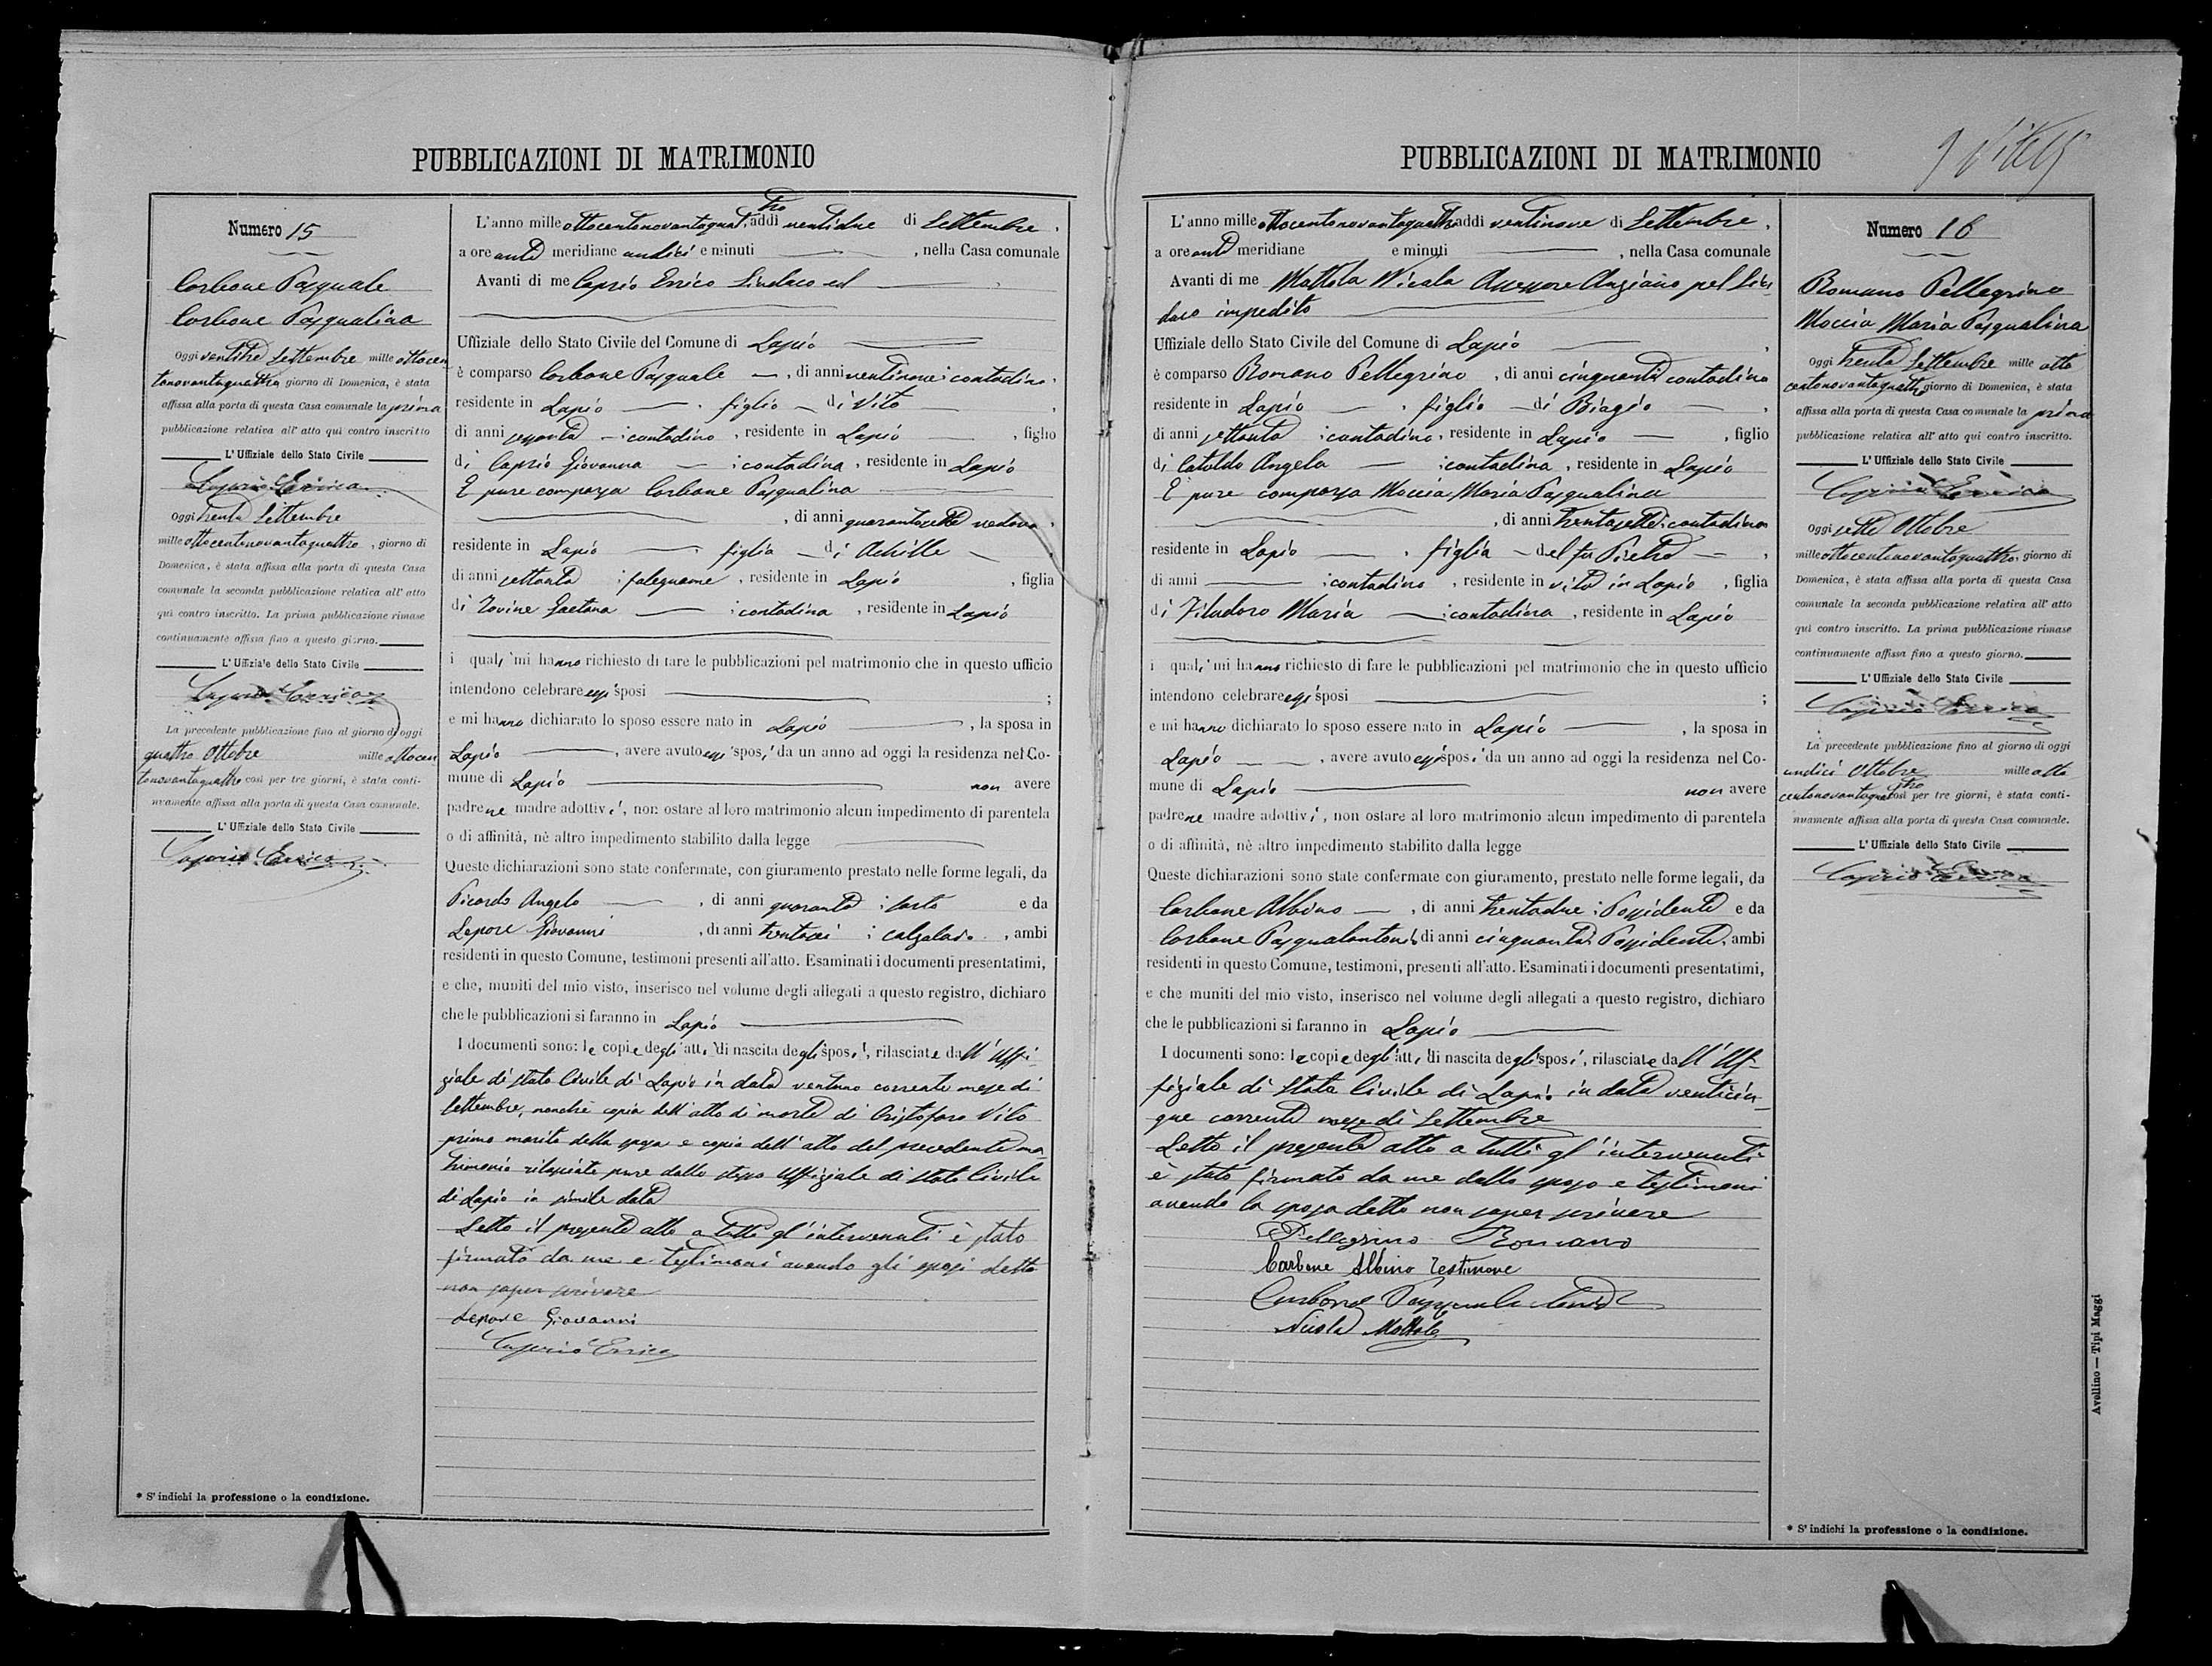 PUBBLICAZIONI DI MATRIMONIO
Numero 15
Carbone Pasquale
Carbone Pasqualina
Oggi ventitre Settembre mille ottocen
tonovantaquattro giorno di Domenica, è stata
affissa alla porta di questa Casa comunale la prima
pubblicazione relativa all' atto qui contro inscritto
L' Uffiziale dello Stato Civile
Caprio Errico
Oggi trenta Settembre
mille ottocentonovantaquattro, giorno di
Domenica, è stata affissa alla porta di questa Casa
comunale la seconda pubblicazione relativa all' atto
qui contro inscritto. La prima pubblicazione rimase
continuamente affissa fino a questo giorno.
L' Uffiziale dello Stato Civile
Caprio Errico
La precedente pubblicazione fino al giorno di oggi
quattro Ottobre mille ottocen
tonovantaquattro così per tre giorni, è stata conti-
nuamente affissa alla porta di questa Casa comunale.
L' Uffiziale dello Stato Civile
Caprio Errico
* S' indichi la professione o la condizione.
L'anno mille ottocentonovantaquattro, addì ventidue di Settembre,
a ore ante meridiane undici e minuti , nella Casa comunale
Avanti di me Caprio Errico Sindaco ed
Uffiziale dello Stato Civile del Comune di Lapio
è comparso Carbone Pasquale, di anni ventinove: contadino,
residente in Lapio, figlio di Vito,
di anni sessanta: contadino, residente in Lapio, figlio
di Caprio Giovanna : contadina, residente in Lapio
E pure comparsa Carbone Pasqualina
, di anni quarantasette vedova,
residente in Lapio, figlia di Achille,
di anni settanta : falegname, residente in Lapio, figlia
di Iovine Gaetana : contadina, residente in Lapio
i quali mi hanno richiesto di fare le pubblicazioni pel matrimonio che in questo ufficio
intendono celebrare essi sposi ;
e mi hanno dichiarato lo sposo essere nato in Lapio, la sposa in
Lapio, avere avuto essi sposi da un anno ad oggi la residenza nel Co-
mune di Lapio non avere
padre ne madre adottivi, non ostare al loro matrimonio alcun impedimento di parentela
o di affinità, nè altro impedimento stabilito dalla legge
Queste dichiarazioni sono state confermate, con giuramento prestato nelle forme legali, da
Picardo Angelo, di anni quaranta : sarto e da
Lepore Giovanni, di anni trentasei : calzolaio, ambi
residenti in questo Comune, testimoni presenti all'atto. Esaminati i documenti presentatimi,
e che, muniti del mio visto, inserisco nel volume degli allegati a questo registro, dichiaro
che le pubblicazioni si faranno in Lapio
I documenti sono: le copie degli atti di nascita degli sposi, rilasciate dall' Uffi-
ziale di Stato Civile di Lapio in data ventuno corrente mese di
Settembre, nonchè copia dell'atto di morte di Cristofaro Vito
primo marito della sposa e copia dell'atto del precedente ma
trimonio rilasciate pure dallo stesso Uffiziale di Stato Civile
di Lapio in simile data
Letto il presente atto a tutti gl' intervenuti è stato
firmato da me e testimoni avendo gli sposi detto
non saper scrivere
Lepore Giovanni
Caprio Errico
PUBBLICAZIONI DI MATRIMONIO
L'anno mille ottocentonovantaquattro addì ventinove di Settembre,
a ore ante meridiane e minuti , nella Casa comunale
Avanti di me Mottola Nicola Assessore Anziano pel Sin
daco impedito
Uffiziale dello Stato Civile del Comune di Lapio,
è comparso Romano Pellegrino, di anni cinquanta contadino
residente in Lapio, figlio di Biagio,
di anni settanta : contadino, residente in Lapio, figlio
di Cataldo Angela : contadina, residente in Lapio
E pure comparsa Moccia Maria Pasqualina
, di anni trentasette : contadina
residente in Lapio, figlia del fu Pietro,
di anni : contadino, residente in vita in Lapio, figlia
di Filadoro Maria : contadina, residente in Lapio
i quali mi hanno richiesto di fare le pubblicazioni pel matrimonio che in questo ufficio
intendono celebrare essi sposi ;
e mi hanno dichiarato lo sposo essere nato in Lapio, la sposa in
Lapio, avere avuto essi sposi da un anno ad oggi la residenza nel Co-
mune di Lapio non avere
padre ne madre adottivi, non ostare al loro matrimonio alcun impedimento di parentela
o di affinità, nè altro impedimento stabilito dalla legge
Queste dichiarazioni sono state confermate con giuramento, prestato nelle forme legali, da
Carbone Albino, di anni trentadue : Possidente e da
Carbone Pasqualantonio, di anni cinquanta: Possidente, ambi
residenti in questo Comune, testimoni, presenti all'atto. Esaminati i documenti presentatimi,
e che muniti del mio visto, inserisco nel volume degli allegati a questo registro, dichiaro
che le pubblicazioni si faranno in Lapio
I documenti sono: le copie degli atti di nascita degli sposi, rilasciate dall' Uf-
fiziale di Stato Civile di Lapio in data venticin-
que corrente mese di Settembre
Letto il presente atto a tutti gl' intervenuti
è stato firmato da me dallo sposo e testimoni
avendo la sposa detto non saper scrivere
Pellegrino Romano
Carbone Albino Testimone
Carbone Pasqualantonio
Nicola Mottola
Numero 16
Romano Pellegrino
Moccia Maria Pasqualina
Oggi trenta Settembre mille otto
centonovantaquattro giorno di Domenica, è stata
affissa alla porta di questa Casa comunale la prima
pubblicazione relativa all' atto qui contro inscritto.
L' Uffiziale dello Stato Civile
Caprio Errico
Oggi sette Ottobre
mille ottocentonovantaquattro, giorno di
Domenica, è stata affissa alla porta di questa Casa
comunale la seconda pubblicazione relativa all' atto
qui contro inscritto. La prima pubblicazione rimase
continuamente affissa fino a questo giorno.
L' Uffiziale dello Stato Civile
Caprio Errico
La precedente pubblicazione fino al giorno di oggi
undici Ottobre mille otto
centonovantaquattro così per tre giorni, è stata conti-
nuamente affissa alla porta di questa Casa comunale.
L' Uffiziale dello Stato Civile
Caprio Errico
* S' indichi la professione o la condizione.
Avellino — Tipi Maggi